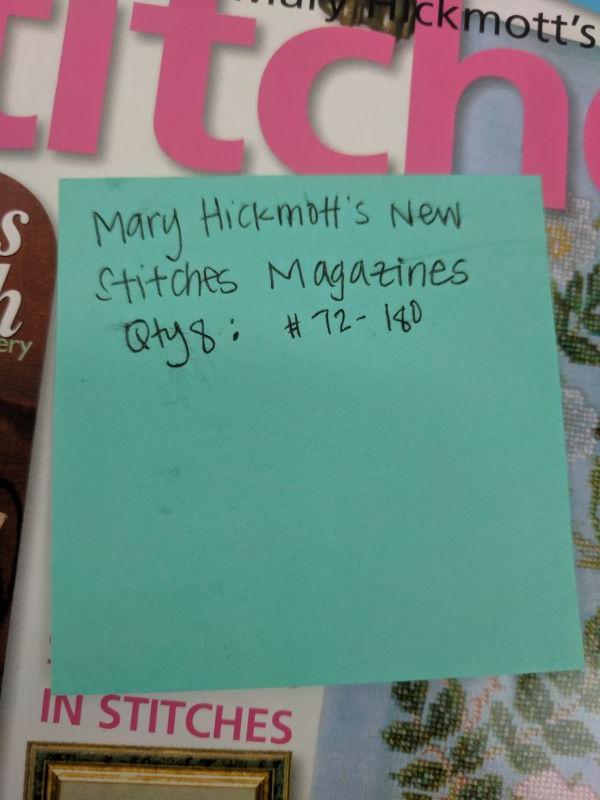 Mary Hickmott's
titche
s
h
ery
Mary Hickmott's New
Stitches Magazines
Qty 8: #72-180
IN STITCHES